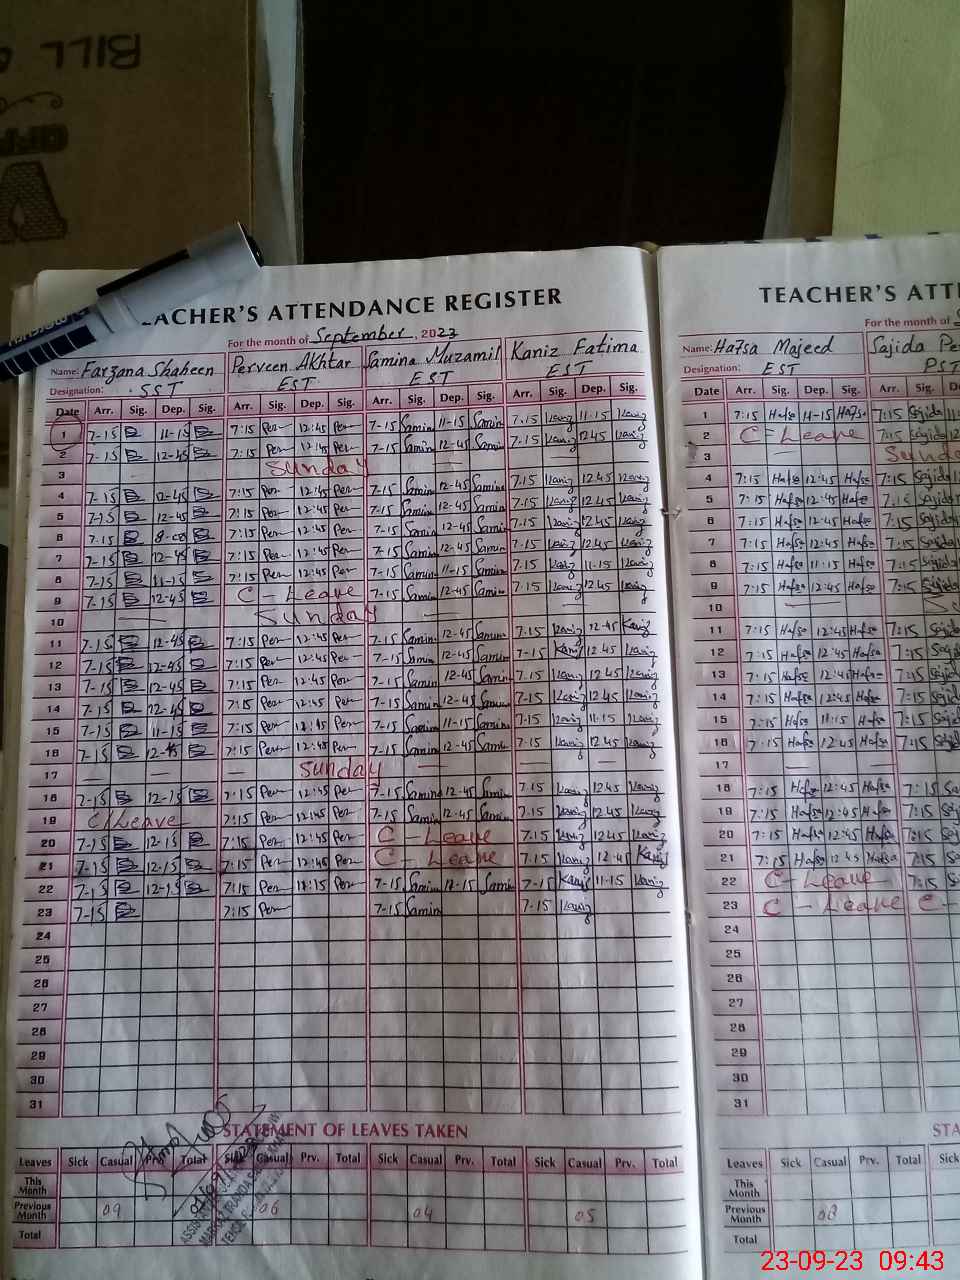 BILL &
TEACHER'S ATTENDANCE REGISTER
For the month of September, 2023
Name: Farzana Shaheen Perveen Akhtar Samina Muzamil Kaniz Fatima
Designation: SST EST EST EST
Date Arr. Sig. Dep. Sig. Arr. Sig. Dep. Sig. Arr. Sig. Dep. Sig. Arr. Sig. Dep. Sig.
1 7-15 11-15 7:15 Per 12:45 Per 7-15 Samin 11-15 Samin 7.15 Kaniz 11-15 Kaniz
2 7-15 12-45 7:15 Per 12:45 Per 7-15 Samin 12-45 Samin 7.15 Kaniz 12.45 Kaniz
3 Sunday
4 7-15 12-45 7:15 Per 12:45 Per 7-15 Samin 12-45 Samin 7.15 Kaniz 12.45 Kaniz
5 7-15 12-45 7:15 Per 12:45 Per 7-15 Samin 12-45 Samin 7.15 Kaniz 12.45 Kaniz
6 7-15 8-00 7:15 Per 12:45 Per 7-15 Samin 12-45 Samin 7.15 Kaniz 12.45 Kaniz
7 7-15 12-45 7:15 Per 12:45 Per 7-15 Samin 12-45 Samin 7.15 Kaniz 12.45 Kaniz
8 7-15 11-15 7:15 Per 12:45 Per 7-15 Samin 11-15 Samin 7.15 Kaniz 11-15 Kaniz
9 7-15 12-45 C - Leave 7-15 Samin 12-45 Samin 7.15 Kaniz 12.45 Kaniz
10 Sunday
11 7-15 12-45 7:15 Per 12:45 Per 7-15 Samin 12-45 Samin 7.15 Kaniz 12-45 Kaniz
12 7-15 12-45 7:15 Per 12:45 Per 7-15 Samin 12-45 Samin 7-15 Kaniz 12.45 Kaniz
13 7-15 12-45 7:15 Per 12:45 Per 7-15 Samin 12-45 Samin 7.15 Kaniz 12.45 Kaniz
14 7-15 12-45 7:15 Per 12:45 Per 7-15 Samin 12-45 Samin 7.15 Kaniz 12.45 Kaniz
15 7-15 11-15 7:15 Per Per 7-15 Samin 11-15 Samin 7.15 Kaniz 11-15 Kaniz
16 7-15 12-45 7:15 Per 12:45 Per 7-15 Samin 12-45 Samin 7.15 Kaniz 12.45 Kaniz
17 Sunday
18 7-15 12-15 7:15 Per 12:45 Per 7-15 Samin 12-45 Samin 7.15 Kaniz 12.45 Kaniz
19 C/Leave 7:15 Per 12:45 Per 7-15 Samin 12-45 Samin 7.15 Kaniz 12.45 Kaniz
20 7-15 12-15 7:15 Per 12:45 Per C - Leave 7.15 Kaniz 12.45 Kaniz
21 7-15 12-15 7:15 Per 12:45 Per C - Leave 7.15 Kaniz 12-45 Kaniz
22 7-15 12-15 7:15 Per 11:15 Per 7-15 Samin Samin 7-15 Kaniz 11-15 Kaniz
23 7-15 7:15 Per 7-15 Samin 7.15 Kaniz
24
25
26
27
28
29
30
31
STATEMENT OF LEAVES TAKEN
Leaves Sick Casual Prv. Total Sick Casual Prv. Total Sick Casual Prv. Total Sick Casual Prv. Total
This Month
Previous Month 09 06 04 05
Total
TEACHER'S ATTE
For the month of S
Name: Hafsa Majeed Sajida Pe
Designation: EST PST
Date Arr. Sig. Dep. Sig. Arr. Sig.
1 7:15 Hafsa 11-15 Hafsa 7:15 Sajida
2 C - Leave 7:15 Sajida
3 Sund
4 7:15 Hafsa 12:45 Hafsa 7:15 Sajida
5 7:15 Hafsa 12:45 Hafsa 7:15 Sajida
6 7:15 Hafsa 12:45 Hafsa 7:15 Sajida
7 7:15 Hafsa 12:45 Hafsa 7:15 Sajida
8 7:15 Hafsa 11:15 Hafsa 7:15 Sajida
9 7:15 Hafsa 12:45 Hafsa 7:15 Sajida
10
11 7:15 Hafsa 12:45 Hafsa 7:15 Sajida
12 7:15 Hafsa 12:45 Hafsa 7:15 Sajida
13 7:15 Hafsa 12:45 Hafsa 7:15 Sajida
14 7:15 Hafsa 12:45 Hafsa 7:15 Sajida
15 7:15 Hafsa 11:15 Hafsa 7:15 Sajida
16 7:15 Hafsa 12:45 Hafsa 7:15 Sajida
17
18 7:15 Hafsa 12:45 Hafsa 7:15 Sa
19 7:15 Hafsa 12:45 Hafsa 7:15 Sa
20 7:15 Hafsa 12:45 Hafsa 7:15 Saj
21 7:15 Hafsa 12:45 Hafsa 7:15 Sa
22 C - Leave 7:15 S
23 C - Leave C -
24
25
26
27
28
29
30
31
STA
Leaves Sick Casual Prv. Total Sick
This Month
Previous Month 08
Total
23-09-23 09:43